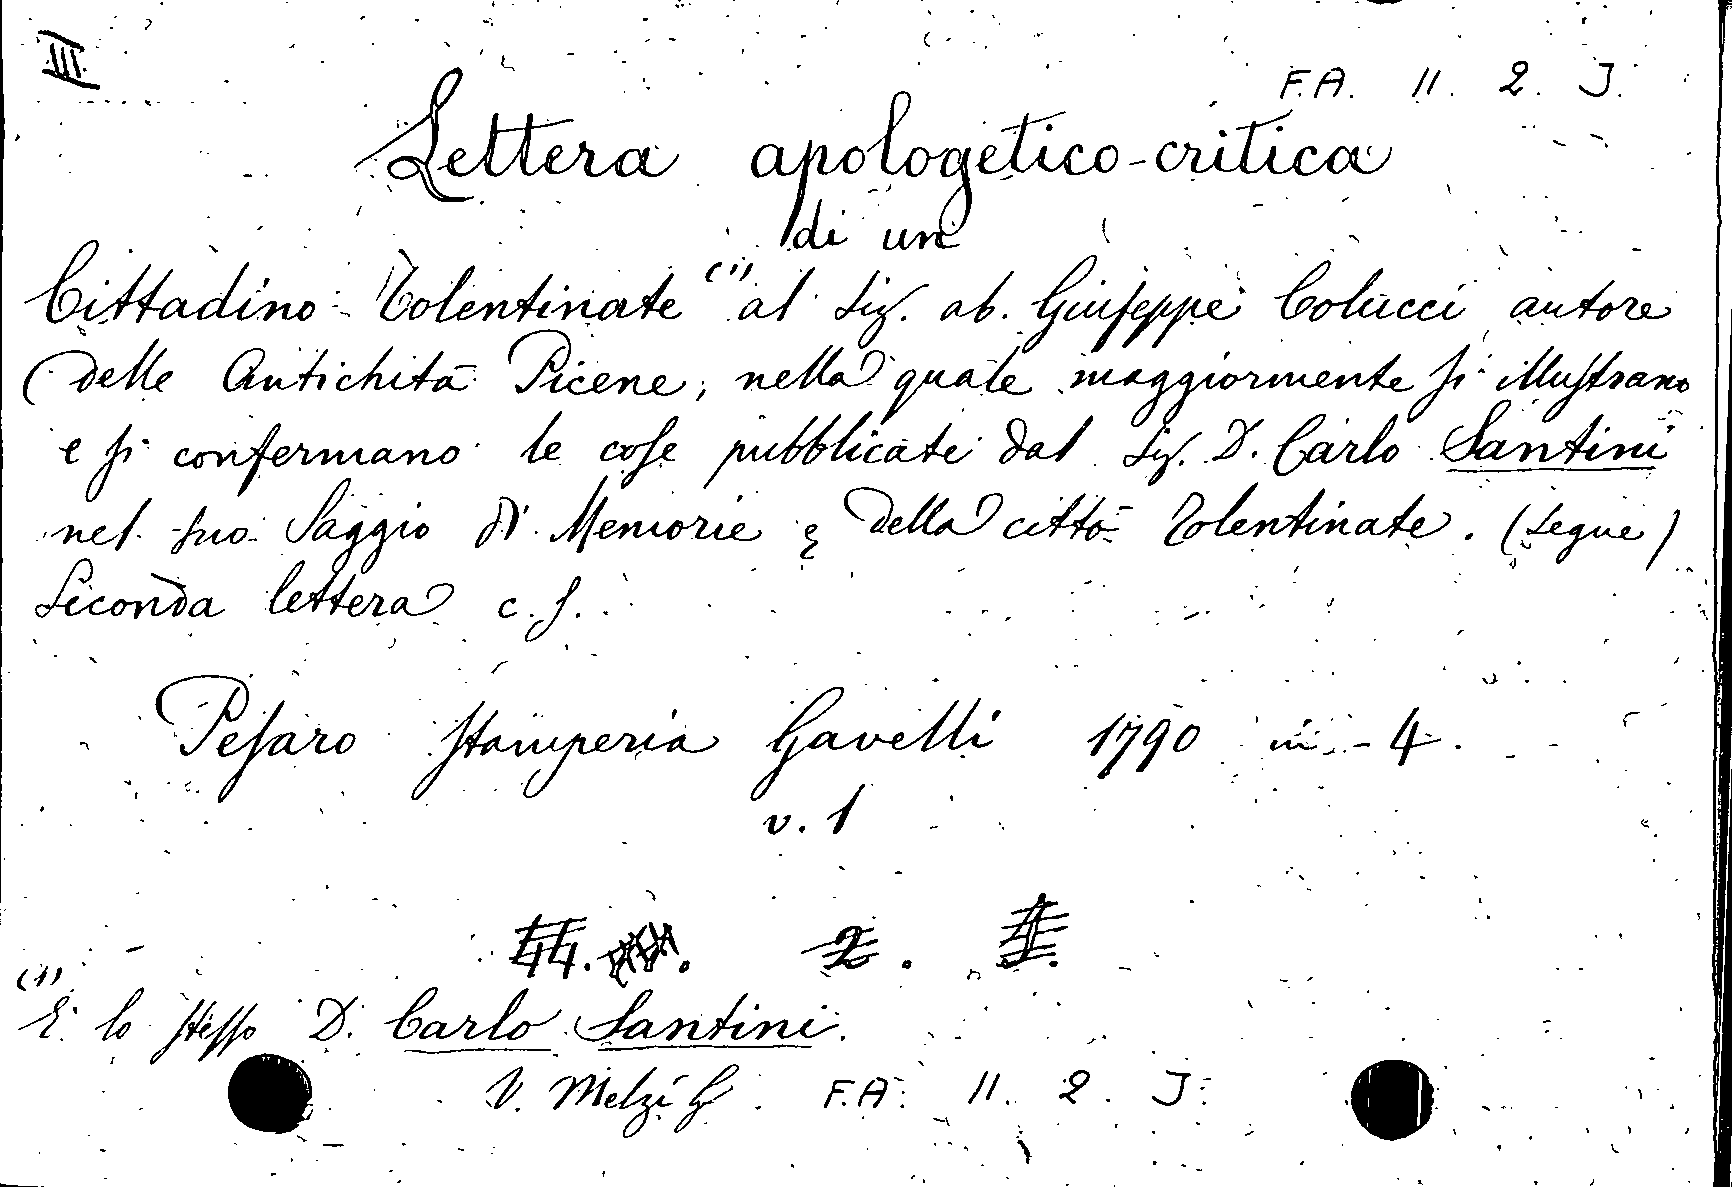 III
F.A. 11. 2. J.
Lettera apologetico-critica
di un
Cittadino Tolentinate (1) al sig. ab. Giuseppe Colucci autore
delle Antichità Picene, nella quale maggiormente si illustrano
e si confermano le cose pubblicate dal sig. D. Carlo Santini
nel suo Saggio di Memorie & della città Tolentinate. (segue)
Seconda lettera c. s.
Pesaro Stamperia Gavelli 1790 in-4.
v. 1
2.
(1)
E. lo stesso D. Carlo Santini.
V. Melzi F.A. 11. 2. J.